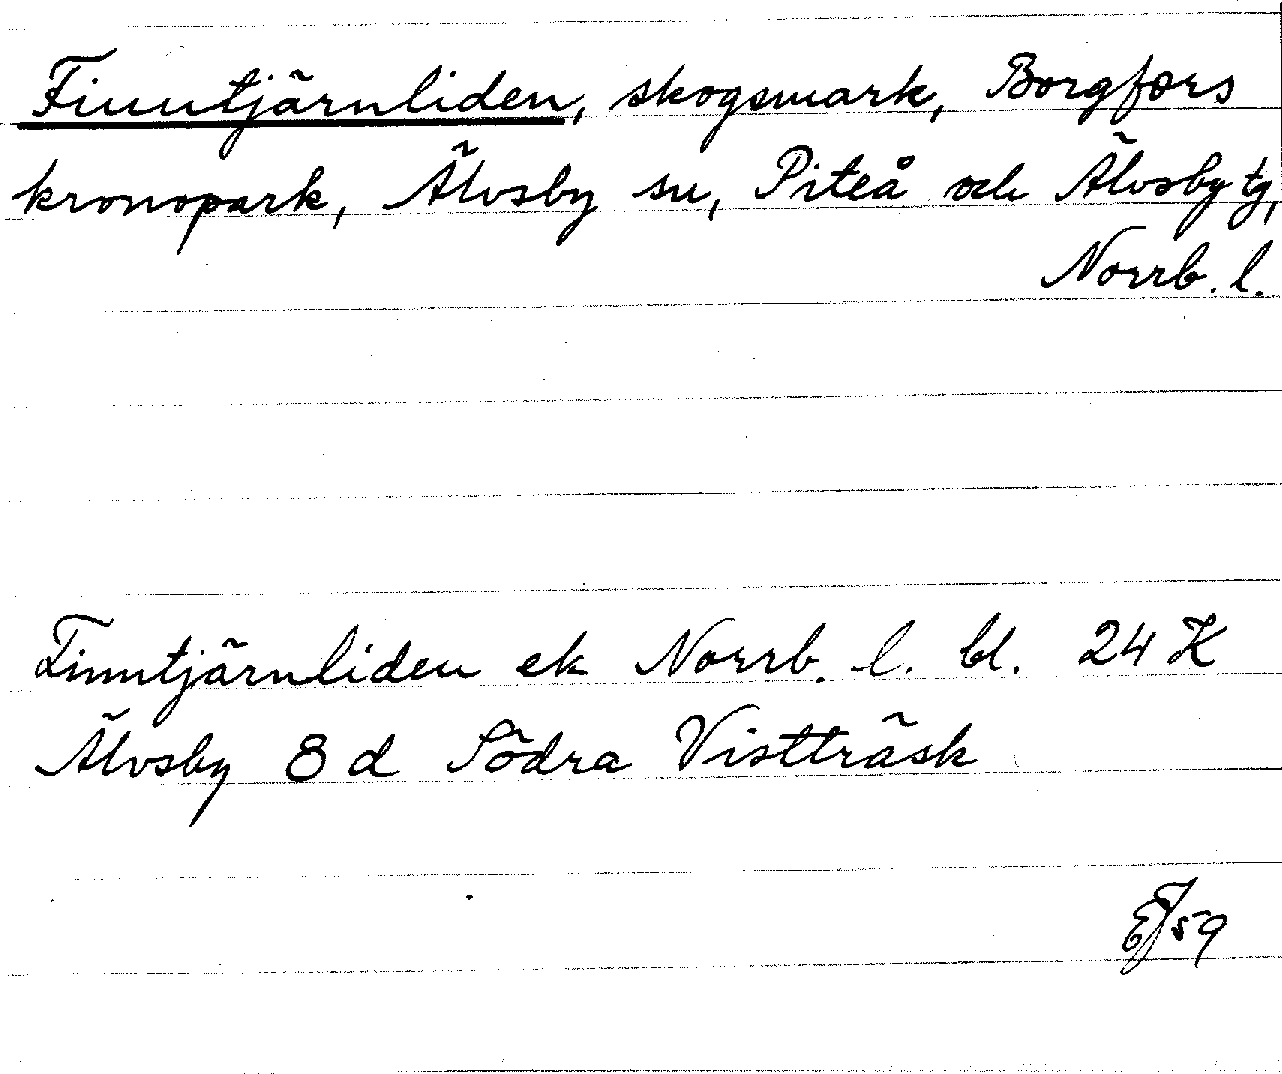 Finntjärnliden, skogsmark, Borgfors
kronopark, Älvsby sn, Piteå och Älvsby tg,
Norrb. l.
Finntjärnliden ek Norrb. l. bl. 24 K
Älvsby 8 d Södra Vistträsk
59